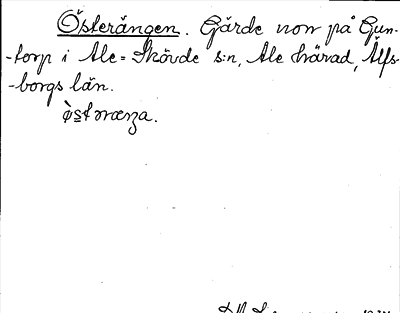 Österängen. Gärde norr på Gun-
-torp i Ale=Skövde s:n, Ale härad, Älfs-
-borgs län.